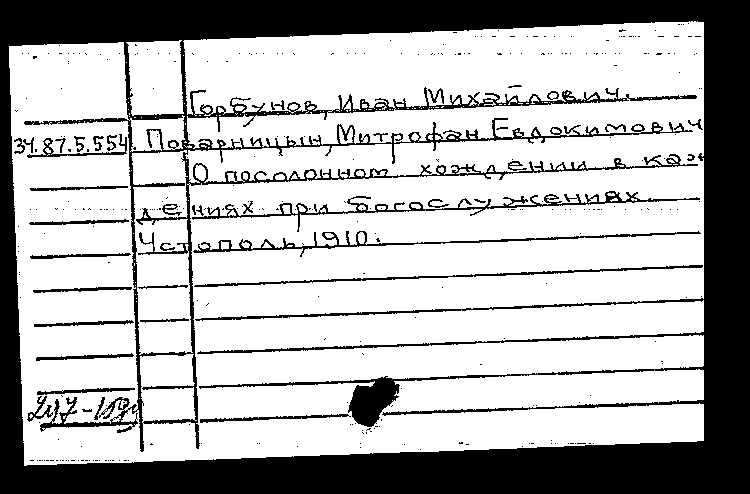 Горбунов, Иван Михайлович.
34.87.5.554. Поварницын, Митрофан Евдокимович
О посолонном хождении в каж
дениях при богослужениях.
Чстополь, 1910.